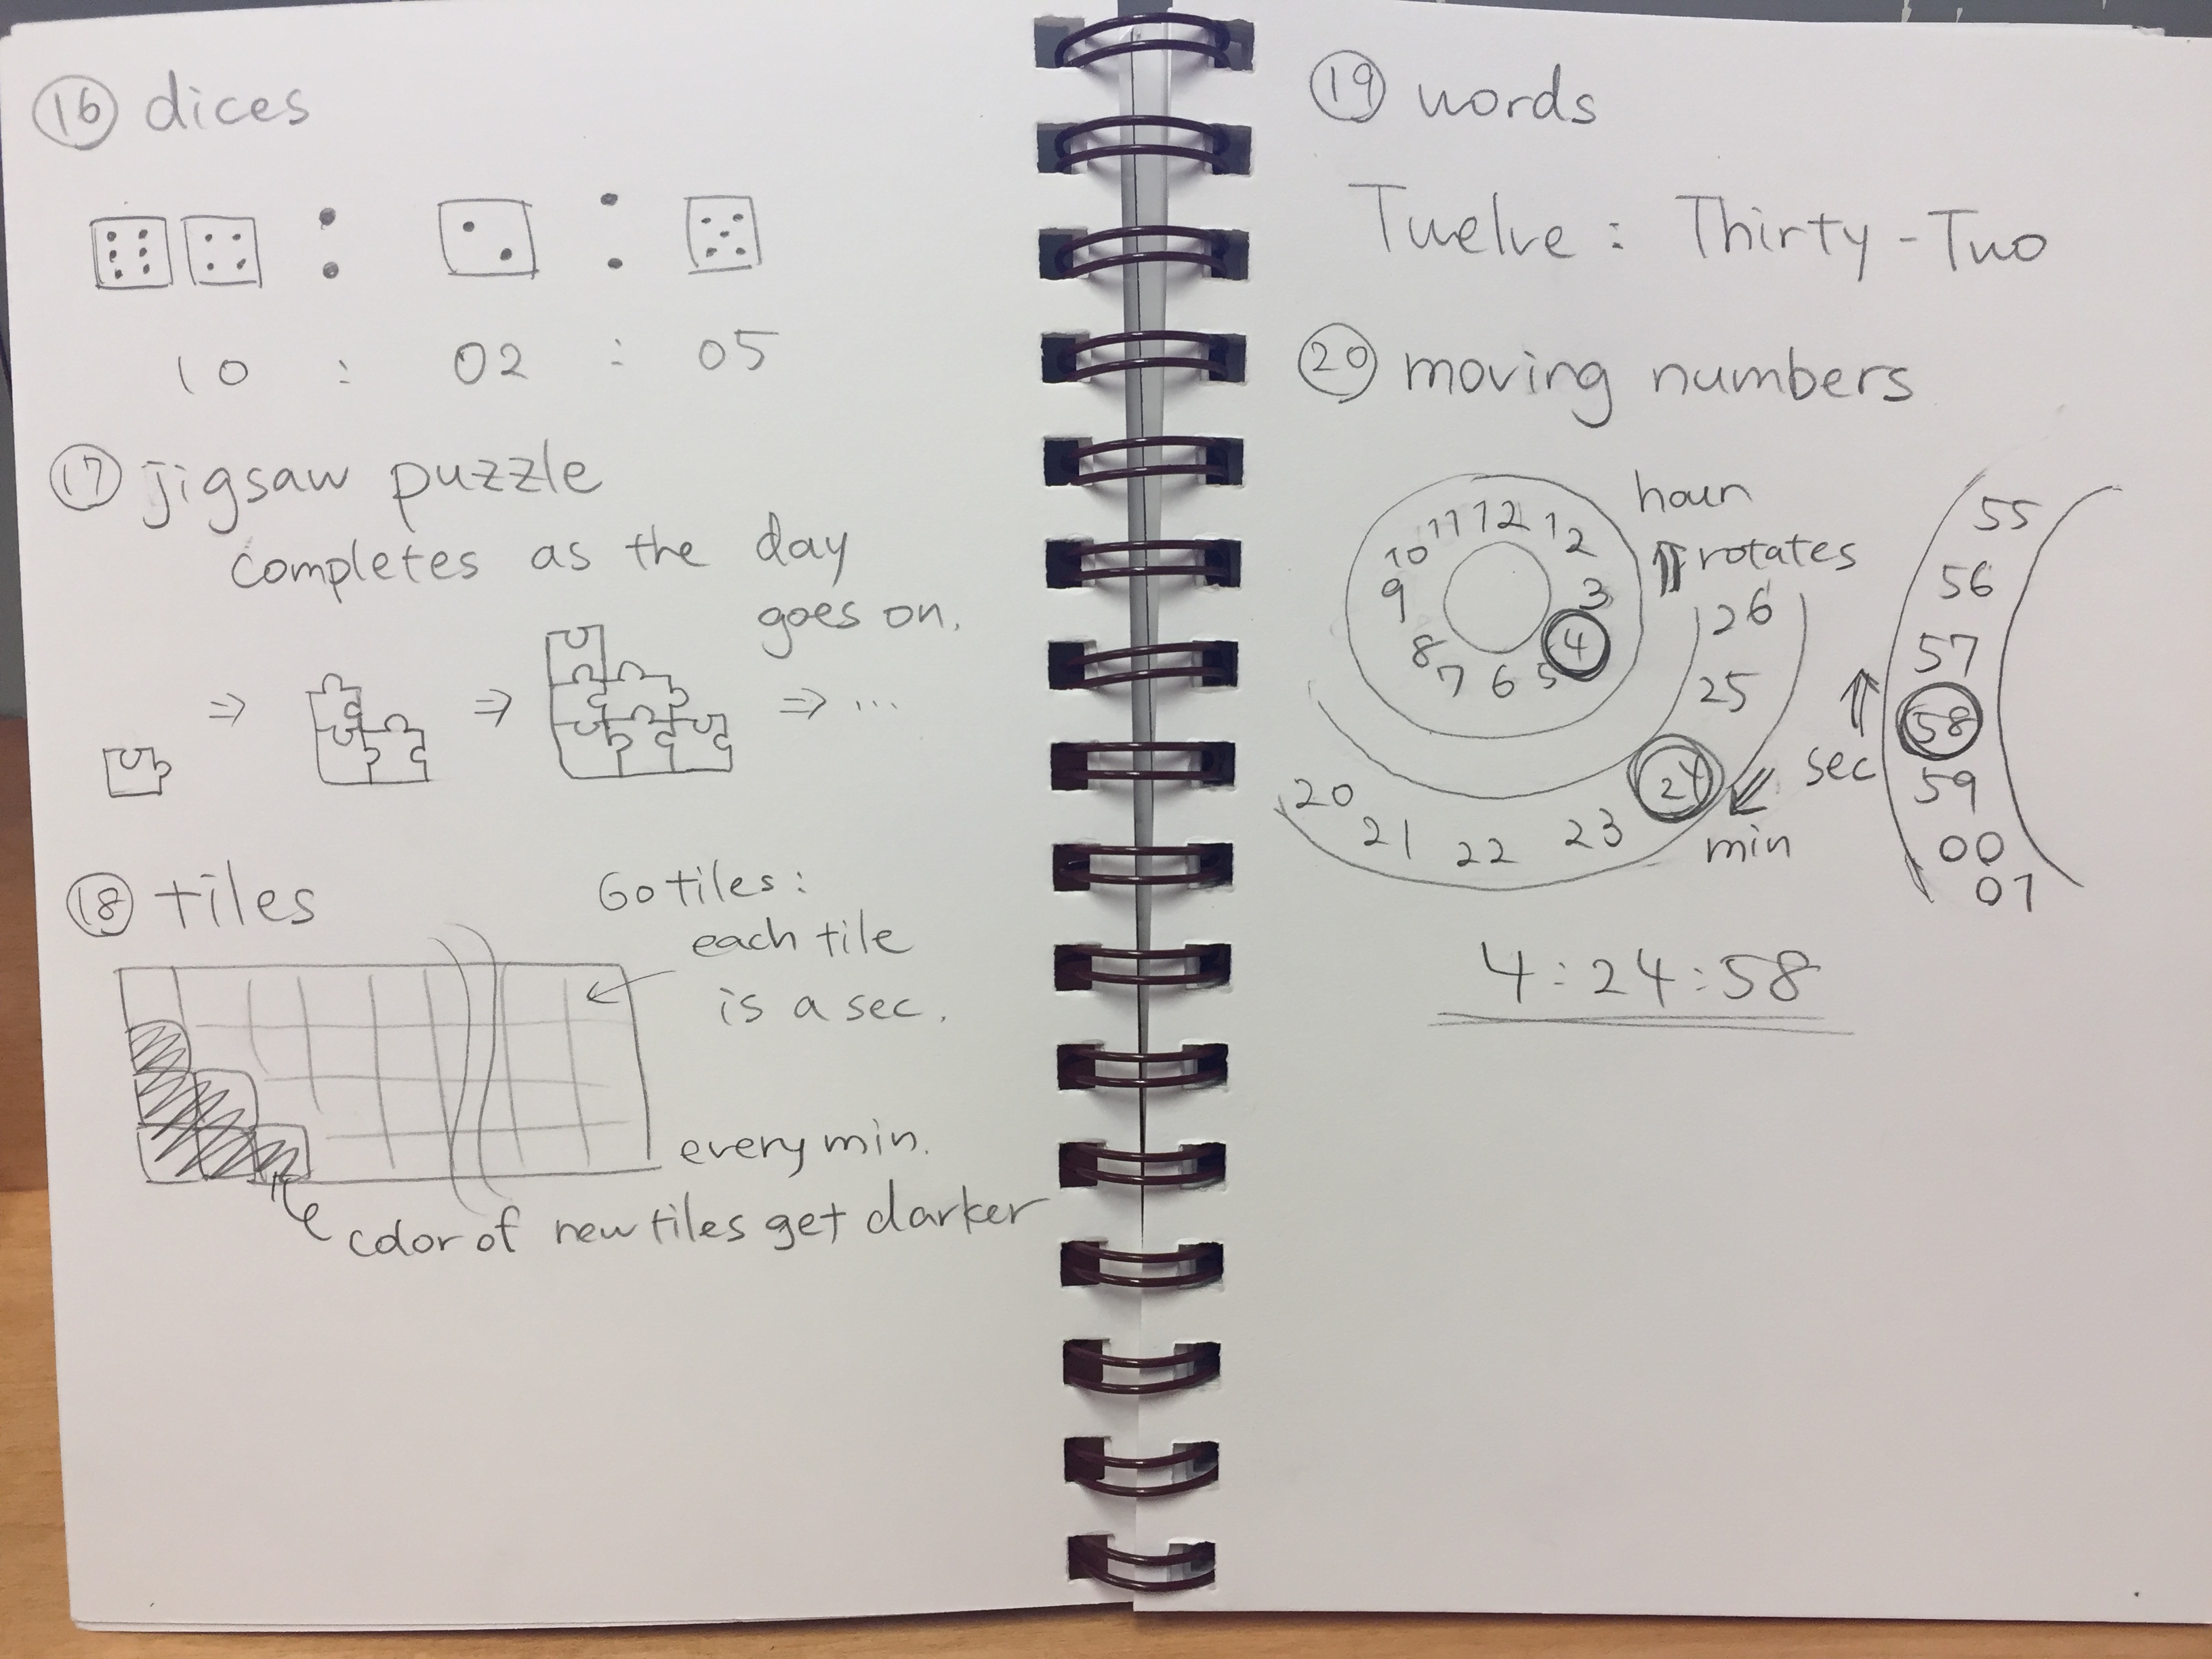 16 dices
10 : 02 : 05
17 jigsaw puzzle
completes as the day
goes on.
⇒ ⇒ ⇒ ...
18 tiles
60 tiles:
each tile
is a sec.
every min.
color of new tiles get darker
19 words
Twelve : Thirty-Two
20 moving numbers
hour
⇑ rotates
11 12 1
10 2
9 3
8 4
7 6 5
26
25
24
20
21 22 23
min
sec
55
56
57
58
59
00
01
4:24:58